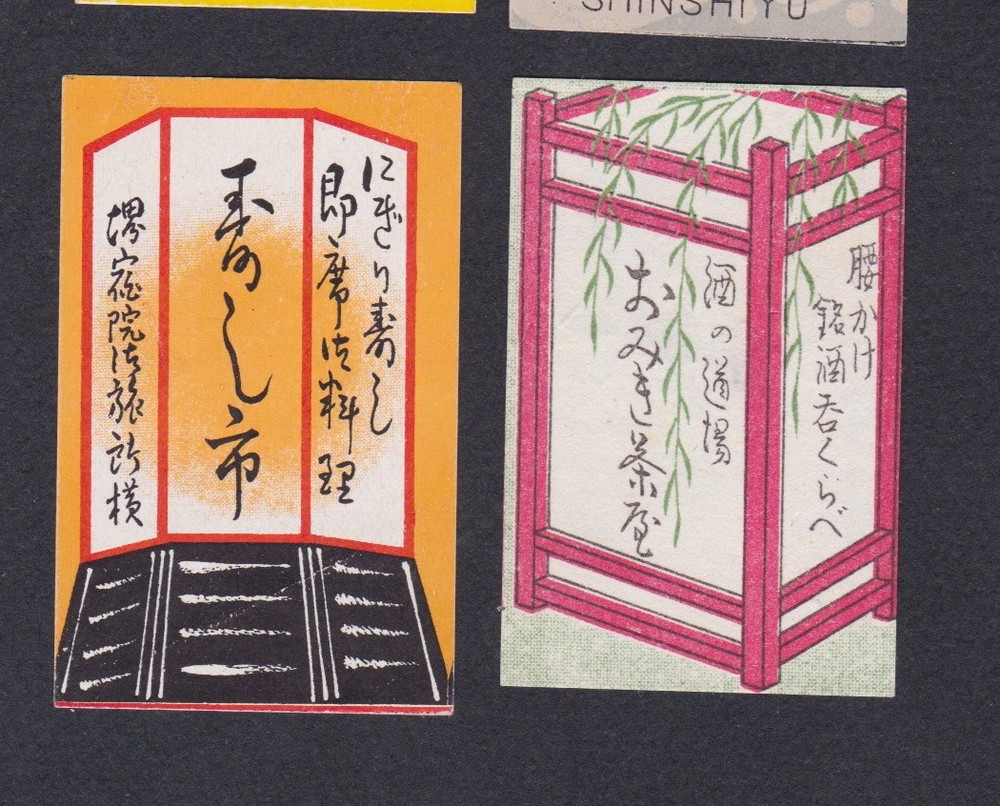 SHINSHIYU
にぎり寿し
即席御料理
寿し市
堺宿院御旅所横
腰かけ
銘酒呑くらべ
酒の道場
おみき茶屋